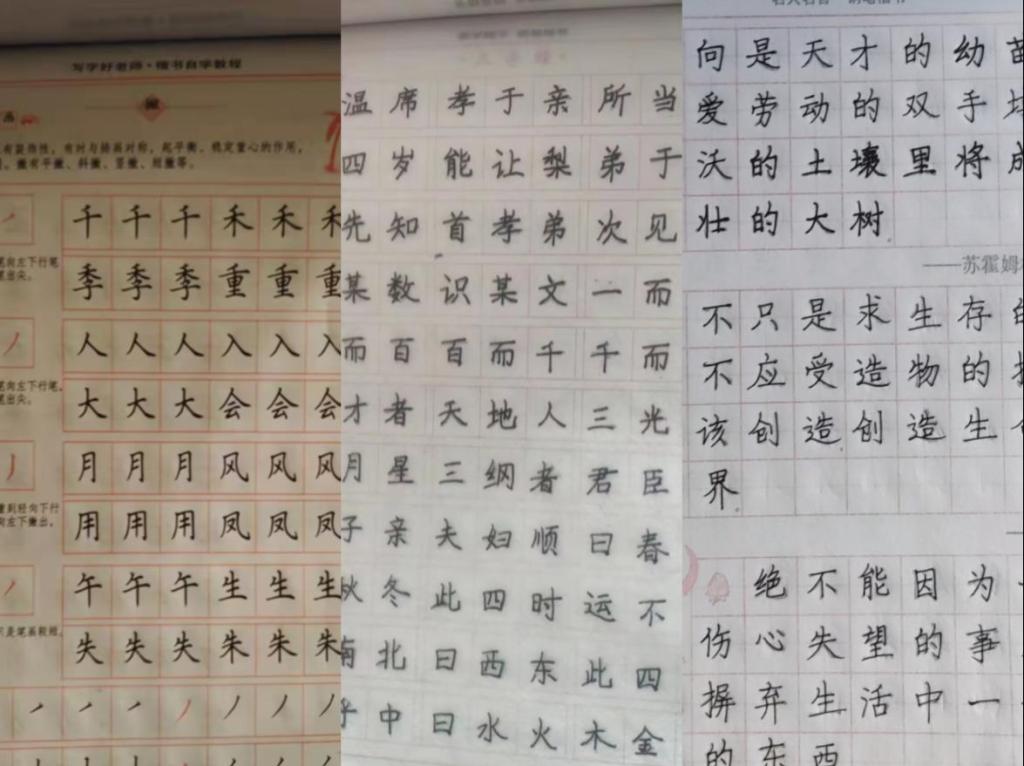 写字好老师·楷书自学教程
有装饰性,有时与捺画对称,起平衡、稳定重心的作用,
撇有平撇、斜撇、竖撇、短撇等。
千千千禾禾禾
笔向左下行笔
出尖。
季季季重重重
人人人入入入
笔向左下行笔,
出尖。
大大大会会会
月月月风风风
重到轻向下行
向左下撇出。
用用用凤凤凤
午午午生生生
只是笔画较短。
失失失朱朱朱
温席孝于亲所当
四岁能让梨弟于
先知首孝弟次见
某数识某文一而
而百百而千千而
才者天地人三光
月星三纲者君臣
子亲夫妇顺曰春
秋冬此四时运不
南北曰西东此四
乎中曰水火木金
向是天才的幼苗
爱劳动的双手
沃的土壤里将成
壮的大树
——苏霍姆林
不只是求生存的
不应受造物的
该创造创造生
界
绝不能因为
伤心失望的事
摒弃生活中一
的东西